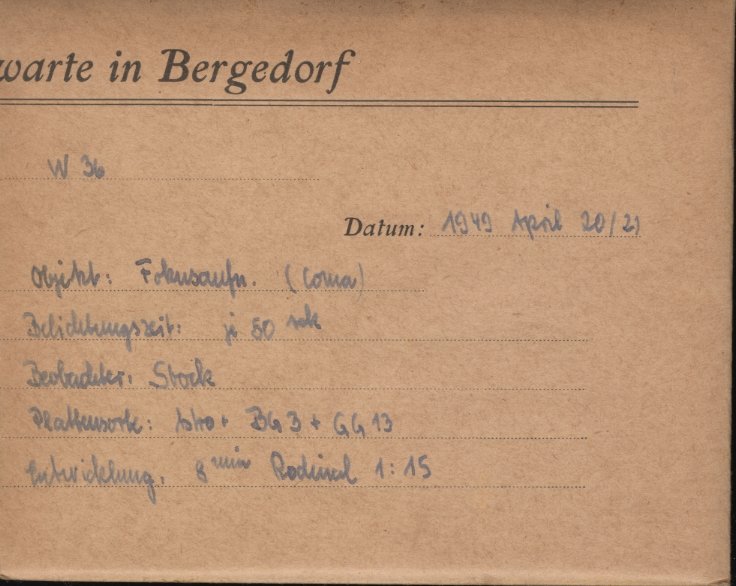 warte in Bergedorf
W 36
Datum: 1949 April 20/21
Objekt: Fokusaufn. (Coma)
Belichtungszeit: je 50 sek
Beobachter: Stock
Plattensorte: Astro + BG 3 + GG 13
Entwicklung. 8 min Rodinal 1:15